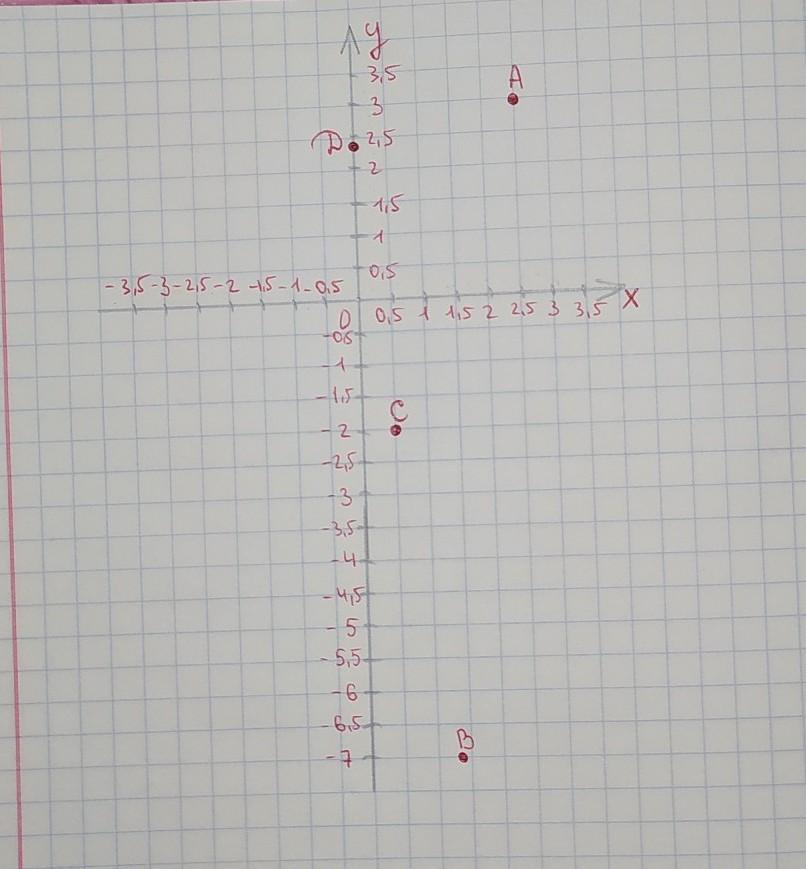 y
3,5
A
3
D 2,5
2
1,5
1
0,5
-3,5 -3 -2,5 -2 -1,5 -1 -0,5
0 0,5 1 1,5 2 2,5 3 3,5 X
-0,5
-1
-1,5
C
-2
-2,5
-3
-3,5
-4
-4,5
-5
-5,5
-6
-6,5
B
-7